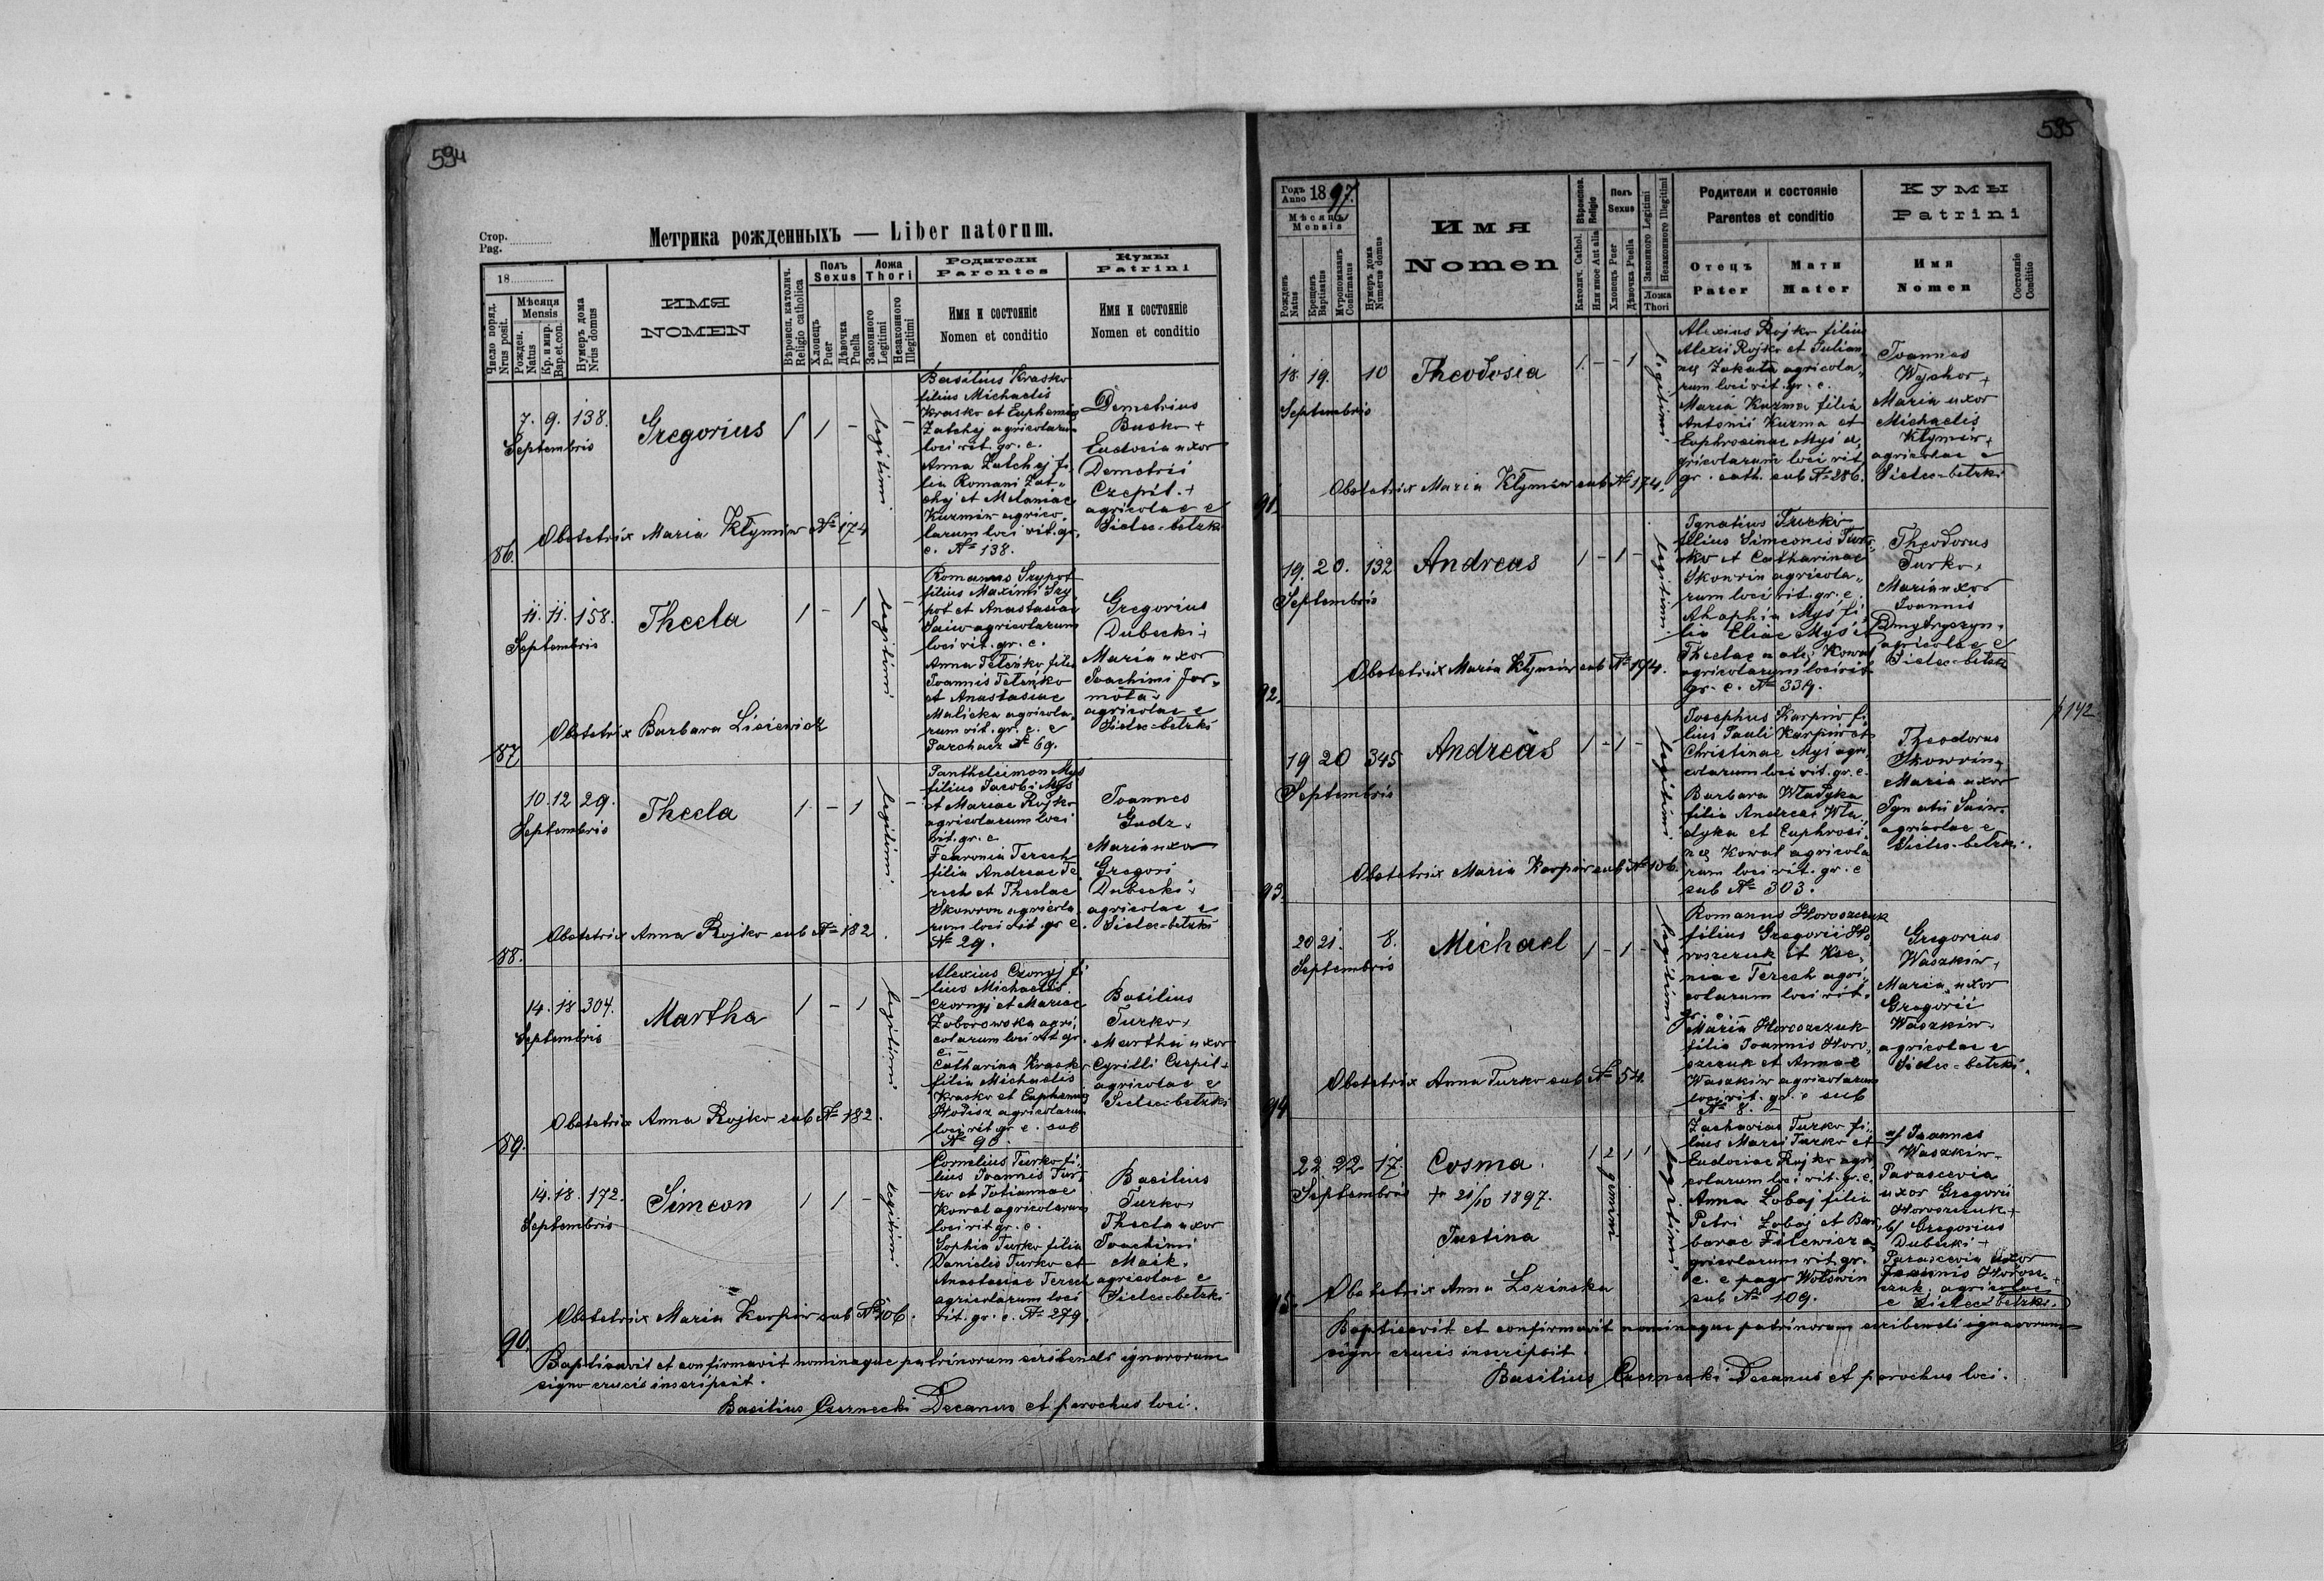 594
Стор.
Pag.
Метрика рожденныхъ — Liber natorum.
18
Число поряд.
Nrus posit.
Мѣсяця
Mensis
Рожден.
Natus
Кр. и мир.
Bap.et.con.
Нумеръ дома
Nrus domus
ИМЯ
NOMEN
Вѣроисп. католич.
Religio catholica
Полъ
Sexus
Хлопецъ
Puer
Дѣвочка
Puella
Ложа
Thori
Законного
Legitimi
Незаконного
Illegitimi
Родители
Parentes
Имя и состояніе
Nomen et conditio
Кумы
Patrini
Имя и состояніе
Nomen et conditio
86.
7. 9. 138.
Septembris
Gregorius
1 1 - -
legitimi
Basilius Krasko
filius Michaelis
Krasko et Euphemiae
Zatchej agricolarum
loci rit. gr. c.
Anna Zatchej fi,
lia Romani Zat,,
chej et Melaniae
Kuzmiw agrico,
larum loci rit. gr.
c. No 138.
Demetrius
Busko +
Eudocia uxor
Demetrii
Czepil. +
agricolae e
Sielec-bełzki
Obstetrix Maria Kłymiw No 174
87
11. 11. 158.
Septembris
Thecla
1 - 1 -
legitimi
Romanus Szypot
filius Maximi Szy,
pot et Anastasiae
Saiw agricolarum
loci rit. gr. c.
Anna Teleńko filia
Joannis Teleńko
et Anastasiae
Malicka agricola,
rum rit. gr. c. e
Parchacz No 69.
Gregorius
Dubecki +
Maria uxor
Joachimi For,
mota +
agricolae e
Sielec-bełzki
Obstetrix Barbara Lisiewicz
88.
10 12 29.
Septembris
Thecla
1 - 1 -
legitimi
Pantheleimon Myś
filius Jacobi Myś
et Mariae Rojko
agricolarum loci
rit. gr. c.
Fearonia Terech
filia Andreae Te,
rech et Theclae
Skowron agricola,
rum loci rit. gr. c.
No 29.
Joannes
Gudz +
Maria uxor
Gregorii
Dubecki +
agricolae e
Sielec-bełzki
Obstetrix Anna Rojko sub No 182.
89.
14. 18. 304.
Septembris
Martha
1 - 1 -
legitimi
Alexius Czornyj fi
lius Michaelis
Czornyj et Mariae
Zoborowska agri,
colarum loci rit. gr.
c. -
Catharina Krasko
filia Michaelis
Krasko et Euphemiae
Hodisz agricolarum
loci rit. gr. c. sub
No 90.
Basilius
Turko +
Martha uxor
Cyrilli Czepil +
agricolae e
Sielec-bełzki
Obstetrix Anna Rojko sub No 182.
90.
14. 18. 172.
Septembris
Simeon
1 1 - -
legitimi
Cornelius Turko fi,
lius Joannis Tur,
ko et Tatiannae
Kowal agricolarum
loci rit. gr. c.
Sophia Turko filia
Danielis Turko et
Anastasiae Terech
agricolarum loci
rit. gr. c. No 279.
Basilius
Turko +
Thecla uxor
Joachimi
Maik.
agricolae e
Sielec-bełzki
Obstetrix Maria Karpiw sub No 106.
Baptisavit et confirmavit nominaque patrinorum scribendi ignarorum
signo crucis inscripsit.
Basilius Czernecki Decanus et parochus loci.
595
Годъ
Anno 1897.
Мѣсяцъ
Mensis
Рожденъ
Natus
Крещенъ
Baptisatus
Муропомазанъ
Confirmatus
Нумеръ дома
Numerus domus
Имя
Nomen
Вѣроиспов.
Religio
Католич. Cathol.
Или иное Aut alia
Полъ
Sexus
Хлопець Puer
Дѣвочка Puella
Законного Legitimi
Незаконного Illegitimi
Ложа
Thori
Родители и состояніе
Parentes et conditio
Отецъ
Pater
Мати
Mater
Кумы
Patrini
Имя
Nomen
Состояніе
Conditio
91.
18. 19. 10
Septembris
Theodosia
1. - - 1
legitimi.
Alexius Rojko filius
Alexii Rojko et Julian,
nę Zakała agricola,,
rum loci rit. gr. c.
Maria Kuzma filia
Antonii Kuzma et
Euphrosinae Myś a,
gricolarum loci rit.
gr. cath. sub No 286.
Joannes
Wychor +
Maria uxor
Michaelis
Kłymiw +
agricolae e
Sielec-bełzki
Obstetrix Maria Kłymiw sub No 174.
92.
19. 20. 132
Septembris
Andreas
1 - 1 -
legitimi
Ignatius Turko
filius Simeonis Tur,
ko et Catharinae
Skowrin agricola,,
rum loci rit. gr. c.
Ahaphia Myś fi,
lia Eliae Myś et
Theclae natę Kowal
agricolarum loci rit
gr. c. No 339.
Theodorus
Turko +
Maria uxor
Joannis
Dmytryszyn +
agricolae e
Sielec-bełzki
Obstetrix Maria Kłymiw sub No 174.
93.
19 20 345
Septembris
Andreas
1 - 1 -
legitimi
Josephus Karpiw fi,
lius Pauli Karpiw et
Christinae Myś agri,
colarum loci rit. gr. c.
Barbara Władyka
filia Andreae Wła,
dyka et Euphrosi,
nę Kowal agricola
rum loci rit. gr. c
sub No 303.
Theodorus
Skowrin +
Maria uxor
Ignatii Saiw +
agricolae e
Sielec-bełzki.
142
Obstetrix Maria Karpiw sub No 106.
94
20 21. 8.
Septembris
Michael
1 - 1 -
legitimi
Romanus Horoszczuk
filius Gregorii Ho,
roszczuk et Xse,
niae Terech agri,
colarum loci rit.
gr. c. -
Maria Horoszczuk
filia Joannis Horo,
szczuk et Annae
Waszkiw agricolarum
loci rit. gr. c sub
No 8. -
Gregorius
Waszkiw +
Maria uxor
Gregorii
Waszkiw +
agricolae e
Sielec-bełzki.
Obstetrix Anna Turko sub No 54.
95.
22. 22. 17.
Septembris
Cosma.
+ 21/10 1897.
Justina
1 2 1 1
gemini
legitimi
Zacharias Turko fi,
lius Marci Turko et
Eudociae Rojko agri
colarum loci rit. gr. c.
Anna Lobaj filia
Petri Lobaj et Bar,
barae Filewicz a,
gricolarum rit. gr.
c. e pago Wołswin
sub No 109.
a/ Joannes
Waszkiw +
Parascevia
uxor Gregorii
Horoszczuk +
b/ Gregorius
Dubecki +
Parascevia uxor
Joannis Horosz,
czuk agricolae
e Sielec-bełzki.
Obstetrix Anna Lozinska
Baptisavit et confirmavit nominaque patrinorum scribendi ignarorum
signo crucis inscripsit.
Basilius Czernecki Decanus et parochus loci.